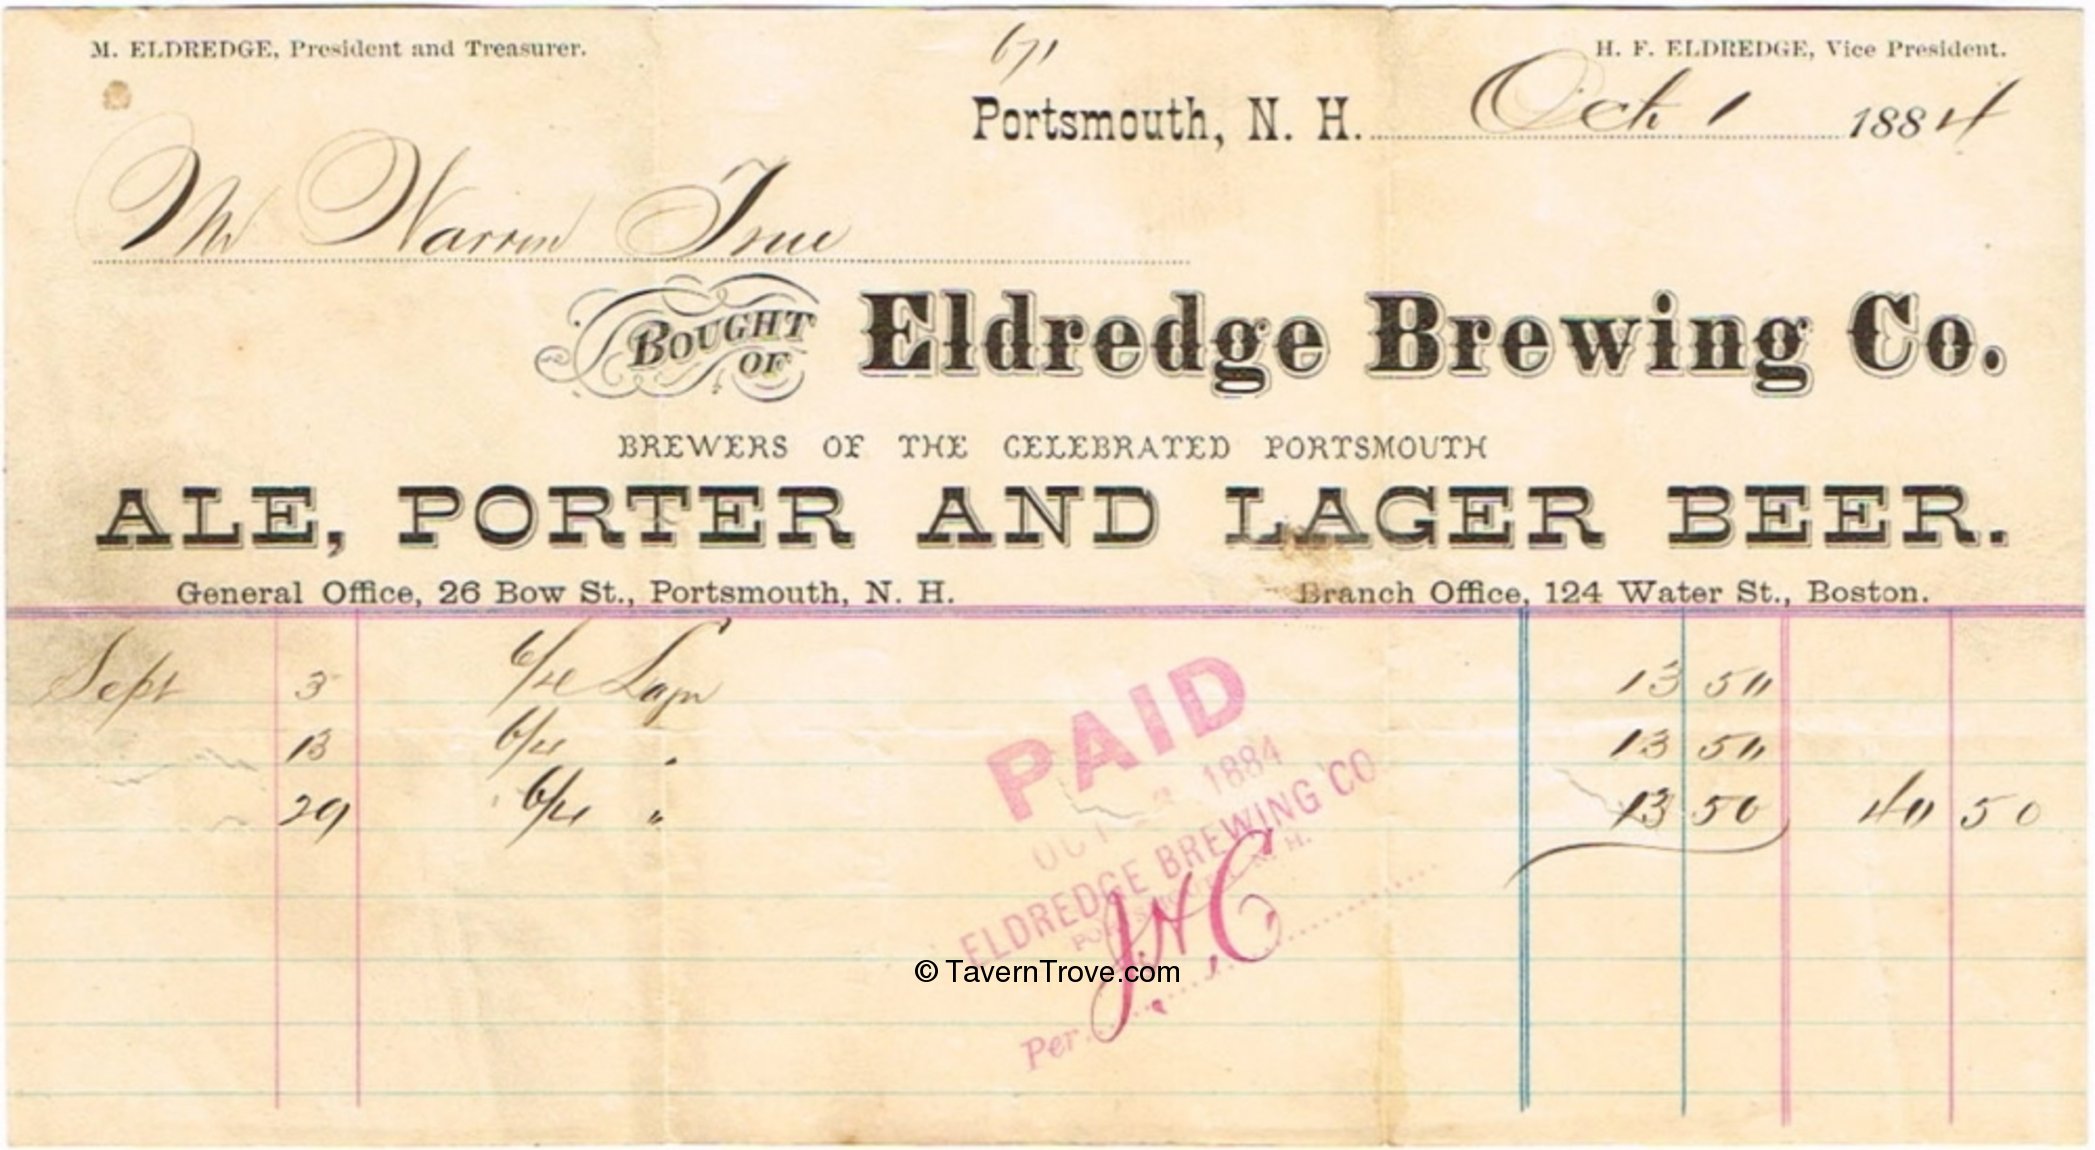 M. ELDREDGE, President and Treasurer.
671
H. F. ELDREDGE, Vice President.
Portsmouth, N. H. Oct 1 1884
Mr Warren True
BOUGHT OF Eldredge Brewing Co.
BREWERS OF THE CELEBRATED PORTSMOUTH
ALE, PORTER AND LAGER BEER.
General Office, 26 Bow St., Portsmouth, N. H.
Branch Office, 124 Water St., Boston.
Sept 3 6/4 Lagr 13 50
13 6/4 " 13 50
29 6/4 " 13 50 40 50
PAID
OCT 1884
ELDREDGE BREWING CO
PORTSMOUTH, N. H.
Per. J.H.C
© TavernTrove.com